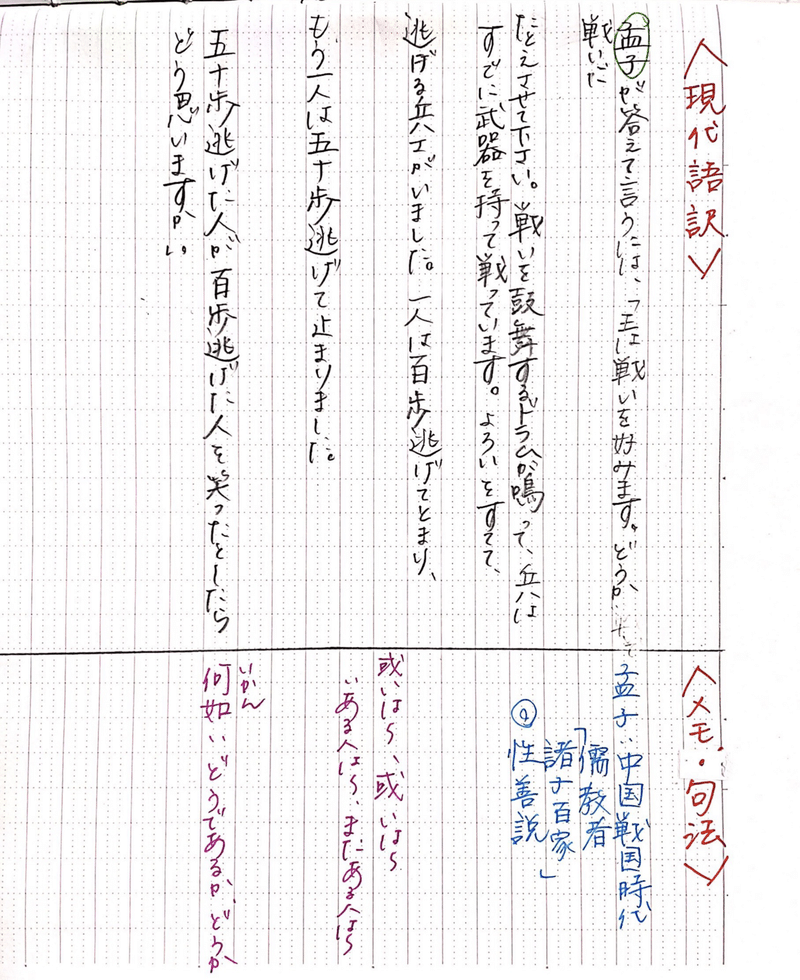 〈現代語訳〉
孟子が答えて言うには、「王は戦いを好みます。どうか
戦いで
たとえさせて下さい。戦いを鼓舞するドラムが鳴って、兵は
すでに武器を持って戦っています。よろいをすてて、
逃げる兵士がいました。一人は百歩逃げてとまり、
もう一人は五十歩逃げて止まりました。
五十歩逃げた人が百歩逃げた人を笑ったとしたら
どう思いますか。
〈メモ・句法〉
孟子:中国戦国時代
儒教者
「諸子百家」
性善説
或いは〜、或いは〜
:ある人は〜、またある人は〜
いかん
何如:どうであるか、どうか